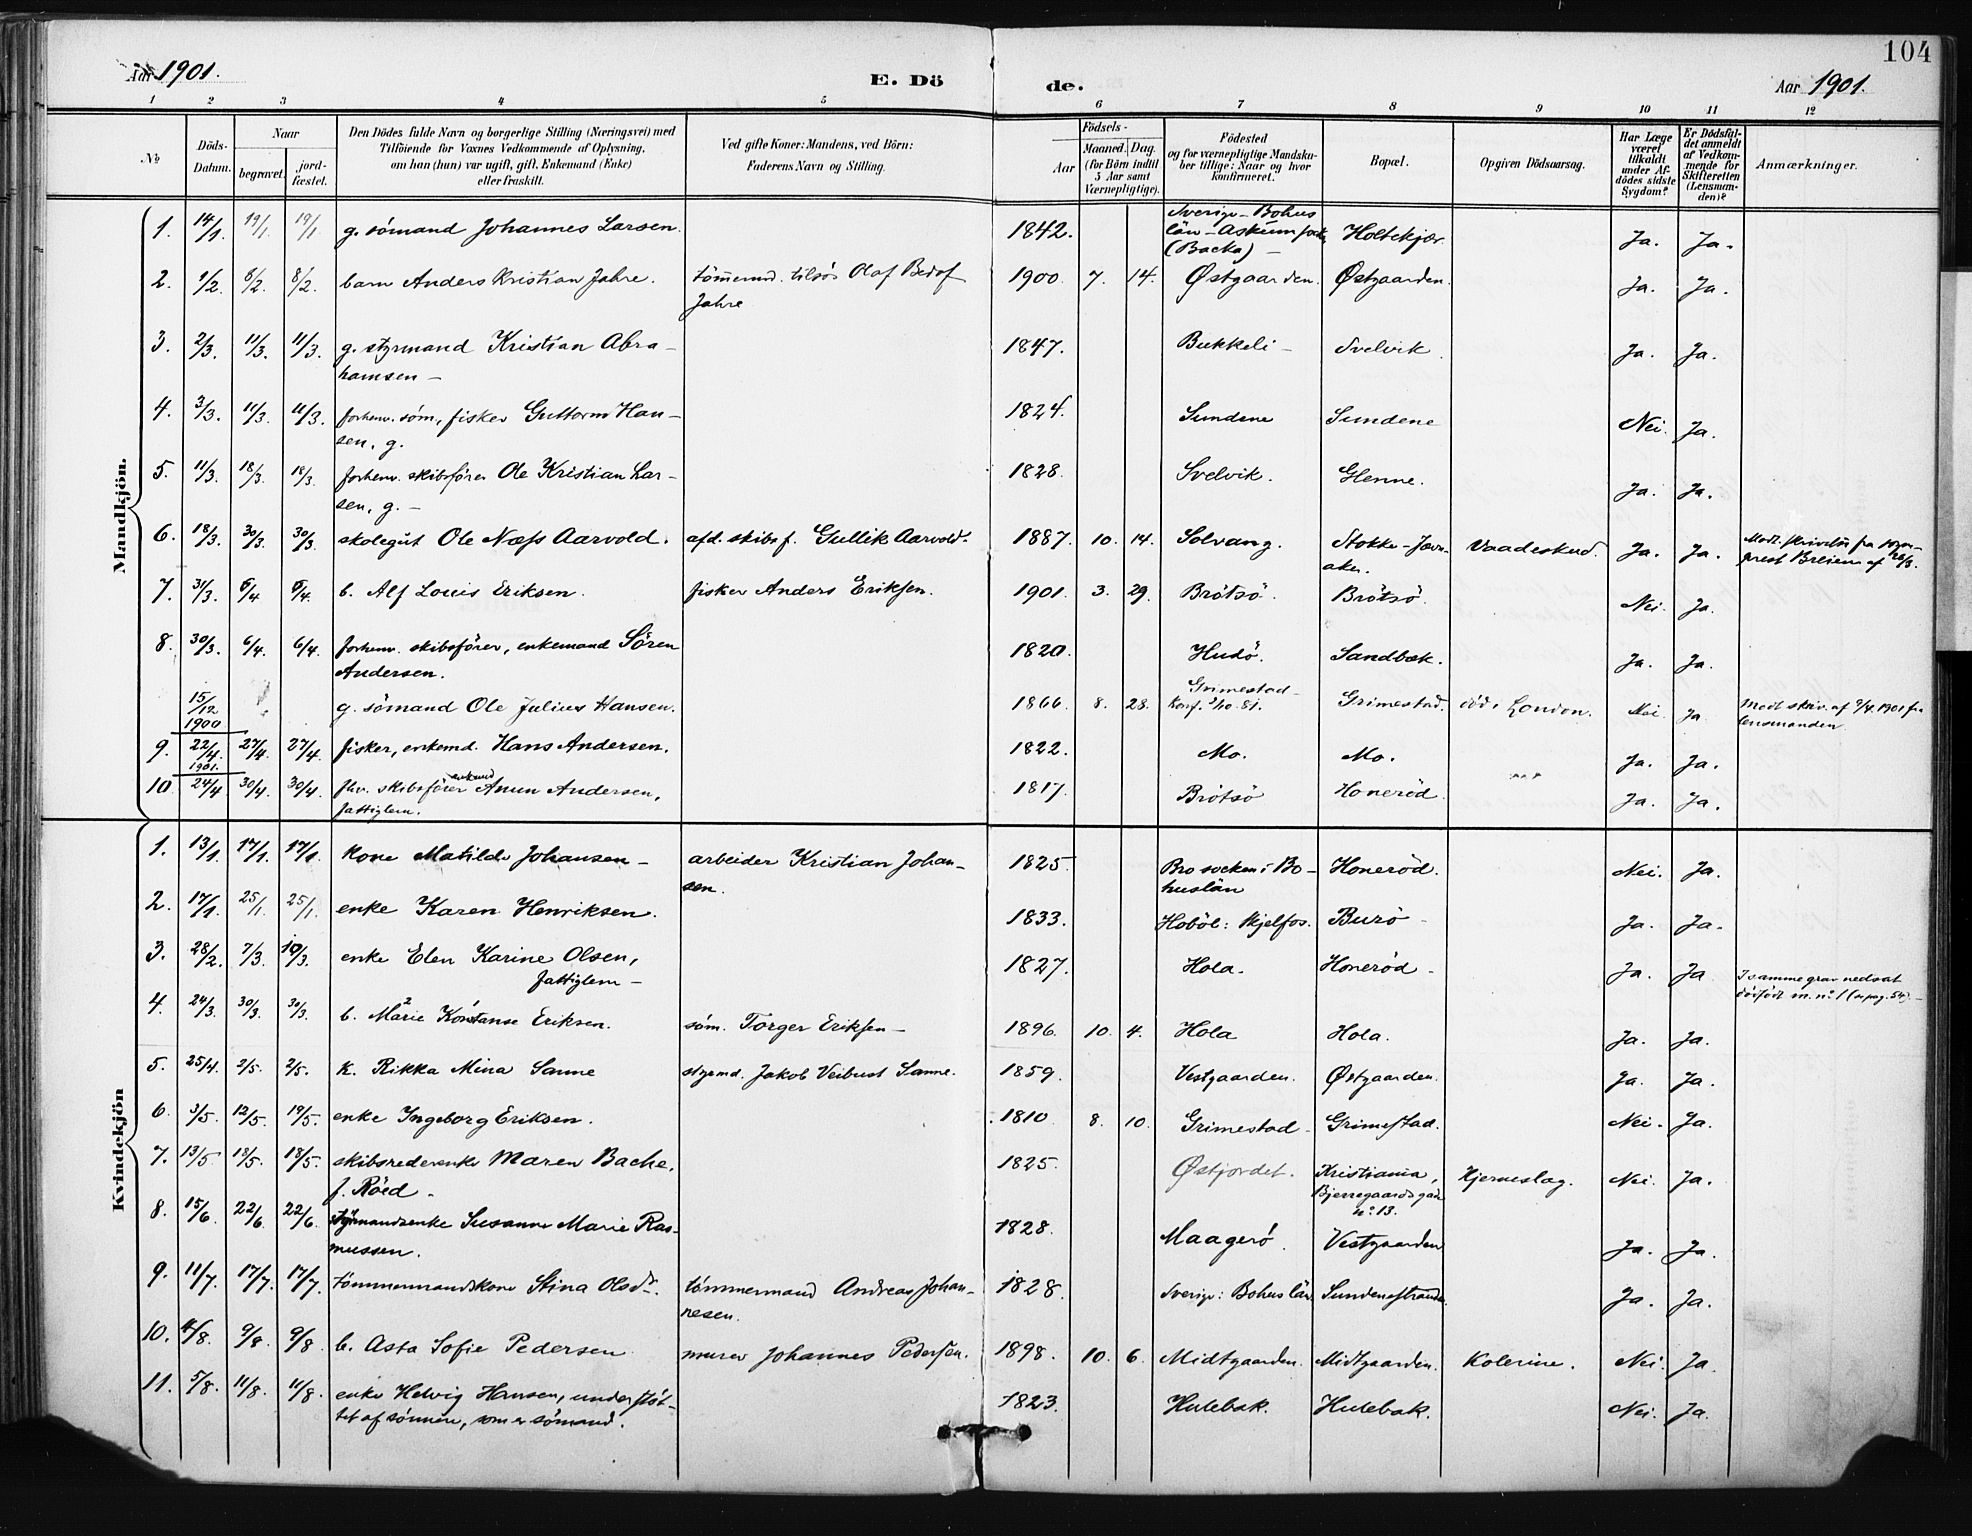 104
Aar 1901. E. Dö de. Aar 1901.
1 2 3 4 5 6 7 8 9 10 11 12
№
Döds-Datum.
Naar
begravet. jordfæstet.
Den Dödes fulde Navn og borgerlige Stilling (Næringsvei) med
Tilföiende for Voxnes Vedkommende af Oplysning,
om han (hun) var ugift, gift, Enkemand (Enke)
eller fraskilt.
Ved gifte Koner: Mandens, ved Börn:
Faderens Navn og Stilling.
Födsels-
Aar Maaned. Dag.
(for Börn indtil
5 Aar samt
Værnepligtige).
Födested
og for værnepligtige Mandskaber tillige: Naar og hvor
konfirmeret.
Bopæl.
Opgiven Dödsaarsag.
Har Læge
været
tilkaldt
under Afdödes sidste
Sygdom?
Er Dödsfaldet anmeldt
af Vedkommende for
Skifteretten
(Lensmanden)?
Anmærkninger.
Mandkjön.
1. 14/1. 19/1. 19/1. g. sömand Johannes Larsen. 1842. Sverige - Bohus
län - Askum
(Backa) - Holtekjær. Ja. Ja.
2. 1/2. 6/2. 8/2. barn Anders Kristian Jahre. tömmermd. tilsös Olaf
Jahre 1900 7. 14. Østgaarden. Østgaarden. Ja. Ja.
3. 2/3. 11/3. 11/3. g. styrmand Kristian Abra-
hamsen - 1847. Bukkeli - Svelvik. Ja. Ja.
4. 3/3. 11/3. 11/3. forhenv. söm, fisker Guttorm Han-
sen, g. 1824. Sundene Sundene Nei. Ja.
5. 11/3. 18/3. 18/3. forhenv. skibsförer Ole Kristian Lar-
sen, g. - 1828. Svelvik. Glenne. Ja. Ja.
6. 18/3. 30/3. 30/3. skolegut Ole Næss Aarvold. afd. skibsf. Gullik Aarvold. 1887. 10. 14. Solvang. Stokke-
aker. Vaadeskud. Ja. Ja. Medt. skrivelse fra sogne-
prest af 26/3.
7. 31/3. 6/4. 6/4. b. Alf Louis Eriksen. fisker Anders Eriksen. 1901. 3. 29. Brötsö. Brötsö. Nei. Ja.
8. 30/3. 6/4. 6/4. forhenv. skibsförer, enkemand Sören
Andersen. 1820. Hudö. Sandbæk. Ja. Ja.
15/12
1900 g. sömand Ole Julius Hansen. 1866 8. 28. Grimestad -
Konf. 2/10. 81. Grimestad. död i London. Nei. Ja. Medt skriv. af 9/4. 1901 fra
lensmanden
9. 22/4.
1901. 27/4. 27/4. fisker, enkemd. Hans Andersen. 1822. Mo. Mo. Ja. Ja.
10. 24/4 30/4. 30/4. fhv. skibsförer enkemd Anun Andersen,
fattiglem. 1817. Brötsö Honeröd. Ja. Ja.
Kvindekjön
1. 13/1. 17/1. 17/1. kone Matilde Johansen - arbeider Kristian Johan-
sen. 1825 Bro socken i Bo-
huslän Honeröd. Nei. Ja.
2. 17/1. 25/1. 25/1. enke Karen Henriksen. 1833. Hoböl: Kjelfos. Burö - Ja. Ja.
3. 28/2. 7/3. 10/3. enke Elen Karine Olsen,
fattiglem - 1827. Hola. Honerød - Ja. Ja I samme grav nedsat
dødfødt m. n: 1 (se pag. 54). -
4. 24/3. 30/3. 30/3. b. Marie Konstanse Eriksen. söm. Torger Eriksen - 1896. 10. 4. Hola Hola. Ja. Ja.
5. 25/4. 2/5. 2/5. k. Rikka Mina Sanne styrmd. Jakob Veibust Sanne. 1859. Vestgaarden. Østgaarden. Ja. Ja.
6. 3/5. 12/5. 19/5. enke Ingeborg Eriksen. 1810 8. 10. Grimestad - Grimestad. Nei. Ja.
7. 13/5. 18/5. 18/5. skibsrederenke Maren Bache,
f. Röed. 1825. Østfjordet. Kristiania,
Bjerregaards gade
n: 13. Hjerneslag. Nei. Ja.
8. 15/6. 22/6. 22/6. styrmandsenke Susanne Marie Ras-
mussen. 1828. Maagerö. Vestgaarden Ja. Ja.
9. 11/7. 17/7. 17/7. tömmermandskone Stina Olsdr. tömmermand Andreas Johan-
nesen. 1828. Sverige: Bohuslän. Sundenestranden. Ja. Ja.
10. 4/8. 9/8. 9/8. b. Asta Sofie Pedersen murer Johannes Pedersen. 1898. 10. 6. Midtgaarden. Midtgaarden. Kolerine. Nei. Ja.
11. 5/8. 11/8. 11/8. enke Helvig Hansen, understöt-
tet af sönnen, som er sömand. 1823. Hulebak. Hulebak. Nei. Ja.